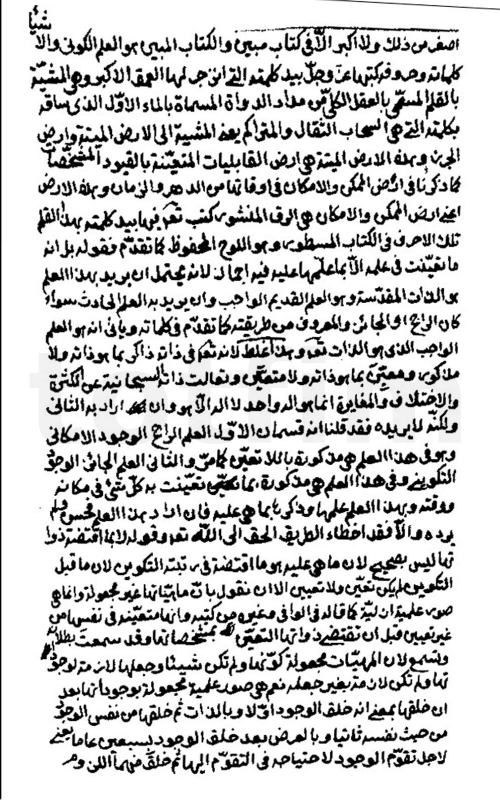 شيئا
اصغر من ذلك ولا اكبر الا في كتاب مبين والكتاب المبين هو العلم الكوني والا
كلماته وحروفه كتبها عز وجل بيد كلمته التي انزجر لها العمق الاكبر وهي المشية
بالقلم المسمى بالعقل الكلي من مداد الدواة المسماة بالماء الاول الذي ساقه
بكلمته التي هي السحاب الثقال والمتراكم يعني المشية الى الارض الميتة وارض
الجرز وهذه الارض الميتة هي ارض القابليات المتعينة بالقيود المشخصات
كما ذكرنا في ارض الممكن والامكان في اوقاتها من الدهر والزمان وهذه الارض
اعني ارض الممكن والامكان هي الرق المنشور كتب تعالى فيها بيد كلمته بهذا القلم
تلك الاحرف في الكتاب المسطور وهو اللوح المحفوظ كما تقدم فقوله بل انه
ما تعينت في علمه الا بما علمها عليه فيه اجمال لانه يحتمل ان يريد بهذا العلم
هو الذات المقدسة وهو العلم القديم الواجب وان يريد به العلم الحادث سواء
كان الراجح او الجائز والمعروف من طريقته كما تقدم في كلماته وياتي انه هو العلم
الواجب الذي هو الذات تعالى وهذا غلط لانه تعالى في ذاته ذاكر بما هو ذاته ولا
مذكور ومعين بما هو ذاته ولا متعين وتعالت ذاته السبحانية عن الكثرة
والاختلاف والمغايرة انما هو اله واحد لا اله الا هو وان اراد به الثاني
ولكنه لا يريده فقد قلنا انه قسمان الاول العلم الراجح الوجود الامكاني
وهو في هذا العلم هي مذكورة بلا تعين كما مر والثاني العلم الجائز الوجود
التكويني وفي هذا العلم هي مذكورة بما تعينت به كل شيء في مكانه
ووقته وبهذا العلم علمها وذكرها بما هي عليه فان اراد بهذا العلم فحسن ولم
يرده والا فقد اخطاء الطريق الحق الى الله تعالى وقوله لا بما اقتضته ذوا
تها ليس بصحيح لان ما هي عليه هو ما اقتضته في رتبة التكوين لان ما قبل
التكوين لم يكن تعين ولا تعيين الا ان نقول بان ماهياتها غير مجعولة وانما هي
صور علمية ازلية كما قاله في الوافي وغيره من كتبه وانها متعينة في نفسها من
غير تعيين قبل ان تقتضي ذواتها التعين بمشخصاتها وقد سمعت بطلانه
وتسمع لان المهيات مجعولة كونها ولم تكن شيئا وجعلها لازمة لوجود
تها ولم تكن لازمة بغير جعله نعم هي صور علمية مجعولة بوجوداتها بعد
ان خلقها بمعنى انه خلق الوجود اولا وبالذات ثم خلقها من نفس الوجود
من حيث نفسه ثانيا وبالعرض بعد خلق الوجود بسبعين عاما يعني
لاجل تقوم الوجود لاحتياجه في التقوم اليها ثم خلق منهما اللزوم